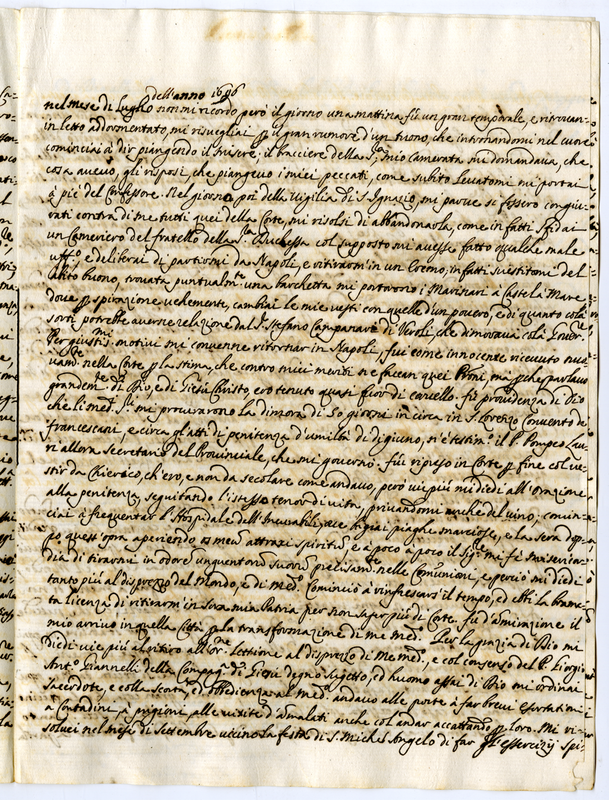 dell'anno 1696
nel mese di Luglio non mi ricordo però il giorno una mattina fù un gran temporale, e ritrovan=
in letto addormentato, mi risvegliai p il gran rumore d'un tuono, che intronandomi nel cuore
cominciai à dir piangendo il miserere; il bracciere della Sig.ra mio camerata mi domandava, che
cosa avevo, gli risposi, che piangevo i miei peccati, come subito levatomi mi portai
à piè del Confessore. Nel giorno poi della Vigilia di S. Ignazio, mi parve si fossero congiu=
rati contra di me tutti quei della Corte, mi risolsi di abbandonarla, come in fatti sfidai
un Cameriero del fratello della Sig.ra Duchessa col supposto mi avesse fatto qualche male
uff.o, e deliberai di partirmi da Napoli, e ritirarm'in un Eremo; in fatti vestitomi del
abito buono, trovata puntualm.te una barchetta mi portarono i Marinari à Castel à Mare
dove p spirazione vehemente, cambiai le mie vesti con quelle d'un povero, e di quanto colà
sortì potrebbe averne relazione dal Sig. Stefano Campanari di Veroli, che dimorava colà Gover.re
Per giustis.mi motivi mi convenne ritornar in Napoli, fui come innocente ricevuto nuo=
vam.te nella Corte p la stima, che contro miei meriti ne facean quei Proni, ma p che parlavo
grandem.te di Dio, e di Giesù Christo, ero tenuto quasi fuor di cervello. Fù providenza di Dio
che li med.i Sig.ri mi procurarono la dimora di 50 giorni in circa in S. Lorenzo Convento de
francescani, e circa gl'atti di penitenza d'umiltà di digiuno, n'è testim.o il P. Pompeo Lau=
ri allora Secretario del Provinciale, che mi governò. Fui ripreso in Corte p fine col ve=
stir da Chierico, ch'ero, e non da secolare come andavo, però vie più mi diedi all'Orazione
alla penitenza, seguitando l'istesso tenor di vita, privandomi anche del vino; comin=
ciai à frequentar l'Hospidale dell'Incurabili, piaghe marciose, e la sera dop=
po quest'opra aperiendo os meum attraxi spiritum, e à poco à poco il Sig.re mi fè misericor=
dia di tirarmi in odorem unguentorum suorum precisam.te nelle Comunioni, e perciò mi diedi
tanto più al disprezzo del Mondo, e di med.o Cominciò à rinfrescarsi il tempo, ed ebbi la brama=
ta licenza di ritirarm'in Sora mia Patria per non saper più di Corte. Fù d'ammirazione il
mio arrivo in quella Città p la transformazione di me med.o Per la grazia di Dio mi
diedi vie più al ritiro all'or.ne Lettione al disprezzo di me med.o, e col consenso del P. Giorgio
Ant.o Giannelli della Compag.a di Giesù degno sugetto, ed huomo assai di Dio mi ordinai
Sacerdote, e colla scorta, ed obbedienza al med.o andavo alle porte à far brevi esortationi
a Contadini à prigioni alle visite d'amalati anche col andar accattando p loro. Mi ri=
solvei nel mese di Settembre vicino la festa di S. Michel Angelo di far gl'essercizij spi=